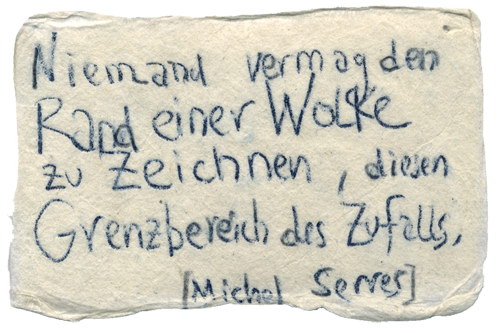 Niemand vermag den
Rand einer Wolke
zu zeichnen, diesen
Grenzbereich des Zufalls.
[Michel Serres]